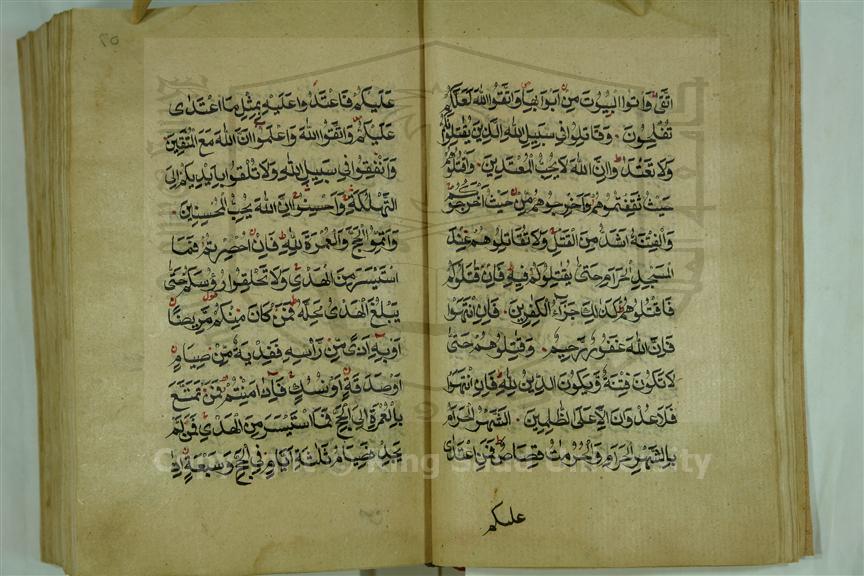 اتقى واتوا البيوت من ابوابها واتقوا الله لعلكم
تفلحون وقاتلوا في سبيل الله الذين يقاتلونكم
ولا تعتدوا ان الله لا يحب المعتدين واقتلوهم
حيث ثقفتموهم واخرجوهم من حيث اخرجوكم
والفتنة اشد من القتل ولا تقاتلوهم عند
المسجد الحرام حتى يقتلوكم فيه فان قتلوكم
فاقتلوهم كذلك جزاء الكفرين فان انتهوا
فان الله غفور رحيم وقتلوهم حتى
لا تكون فتنة ويكون الدين لله فان انتهوا
فلا عدوان الا على الظلمين الشهر الحرام
بالشهر الحرام والحرمت قصاص فمن اعتدى
عليكم
عليكم فاعتدوا عليه بمثل ما اعتدى
عليكم واتقوا الله واعلموا ان الله مع المتقين
وانفقوا في سبيل الله ولا تلقوا بايديكم الى
التهلكة واحسنوا ان الله يحب المحسنين
واتموا الحج والعمرة لله فان احصرتم فما
استيسر من الهدى ولا تحلقوا رؤسكم حتى
يبلغ الهدى محله فمن كان منكم مريضا
او به اذى من راسه ففدية من صيام
او صدقة او نسك فاذا امنتم فمن تمتع
بالعمرة الى الحج فما استيسر من الهدى فمن لم
يجد فصيام ثلثة ايام في الحج وسبعة اذا
Copyright © King Saud University